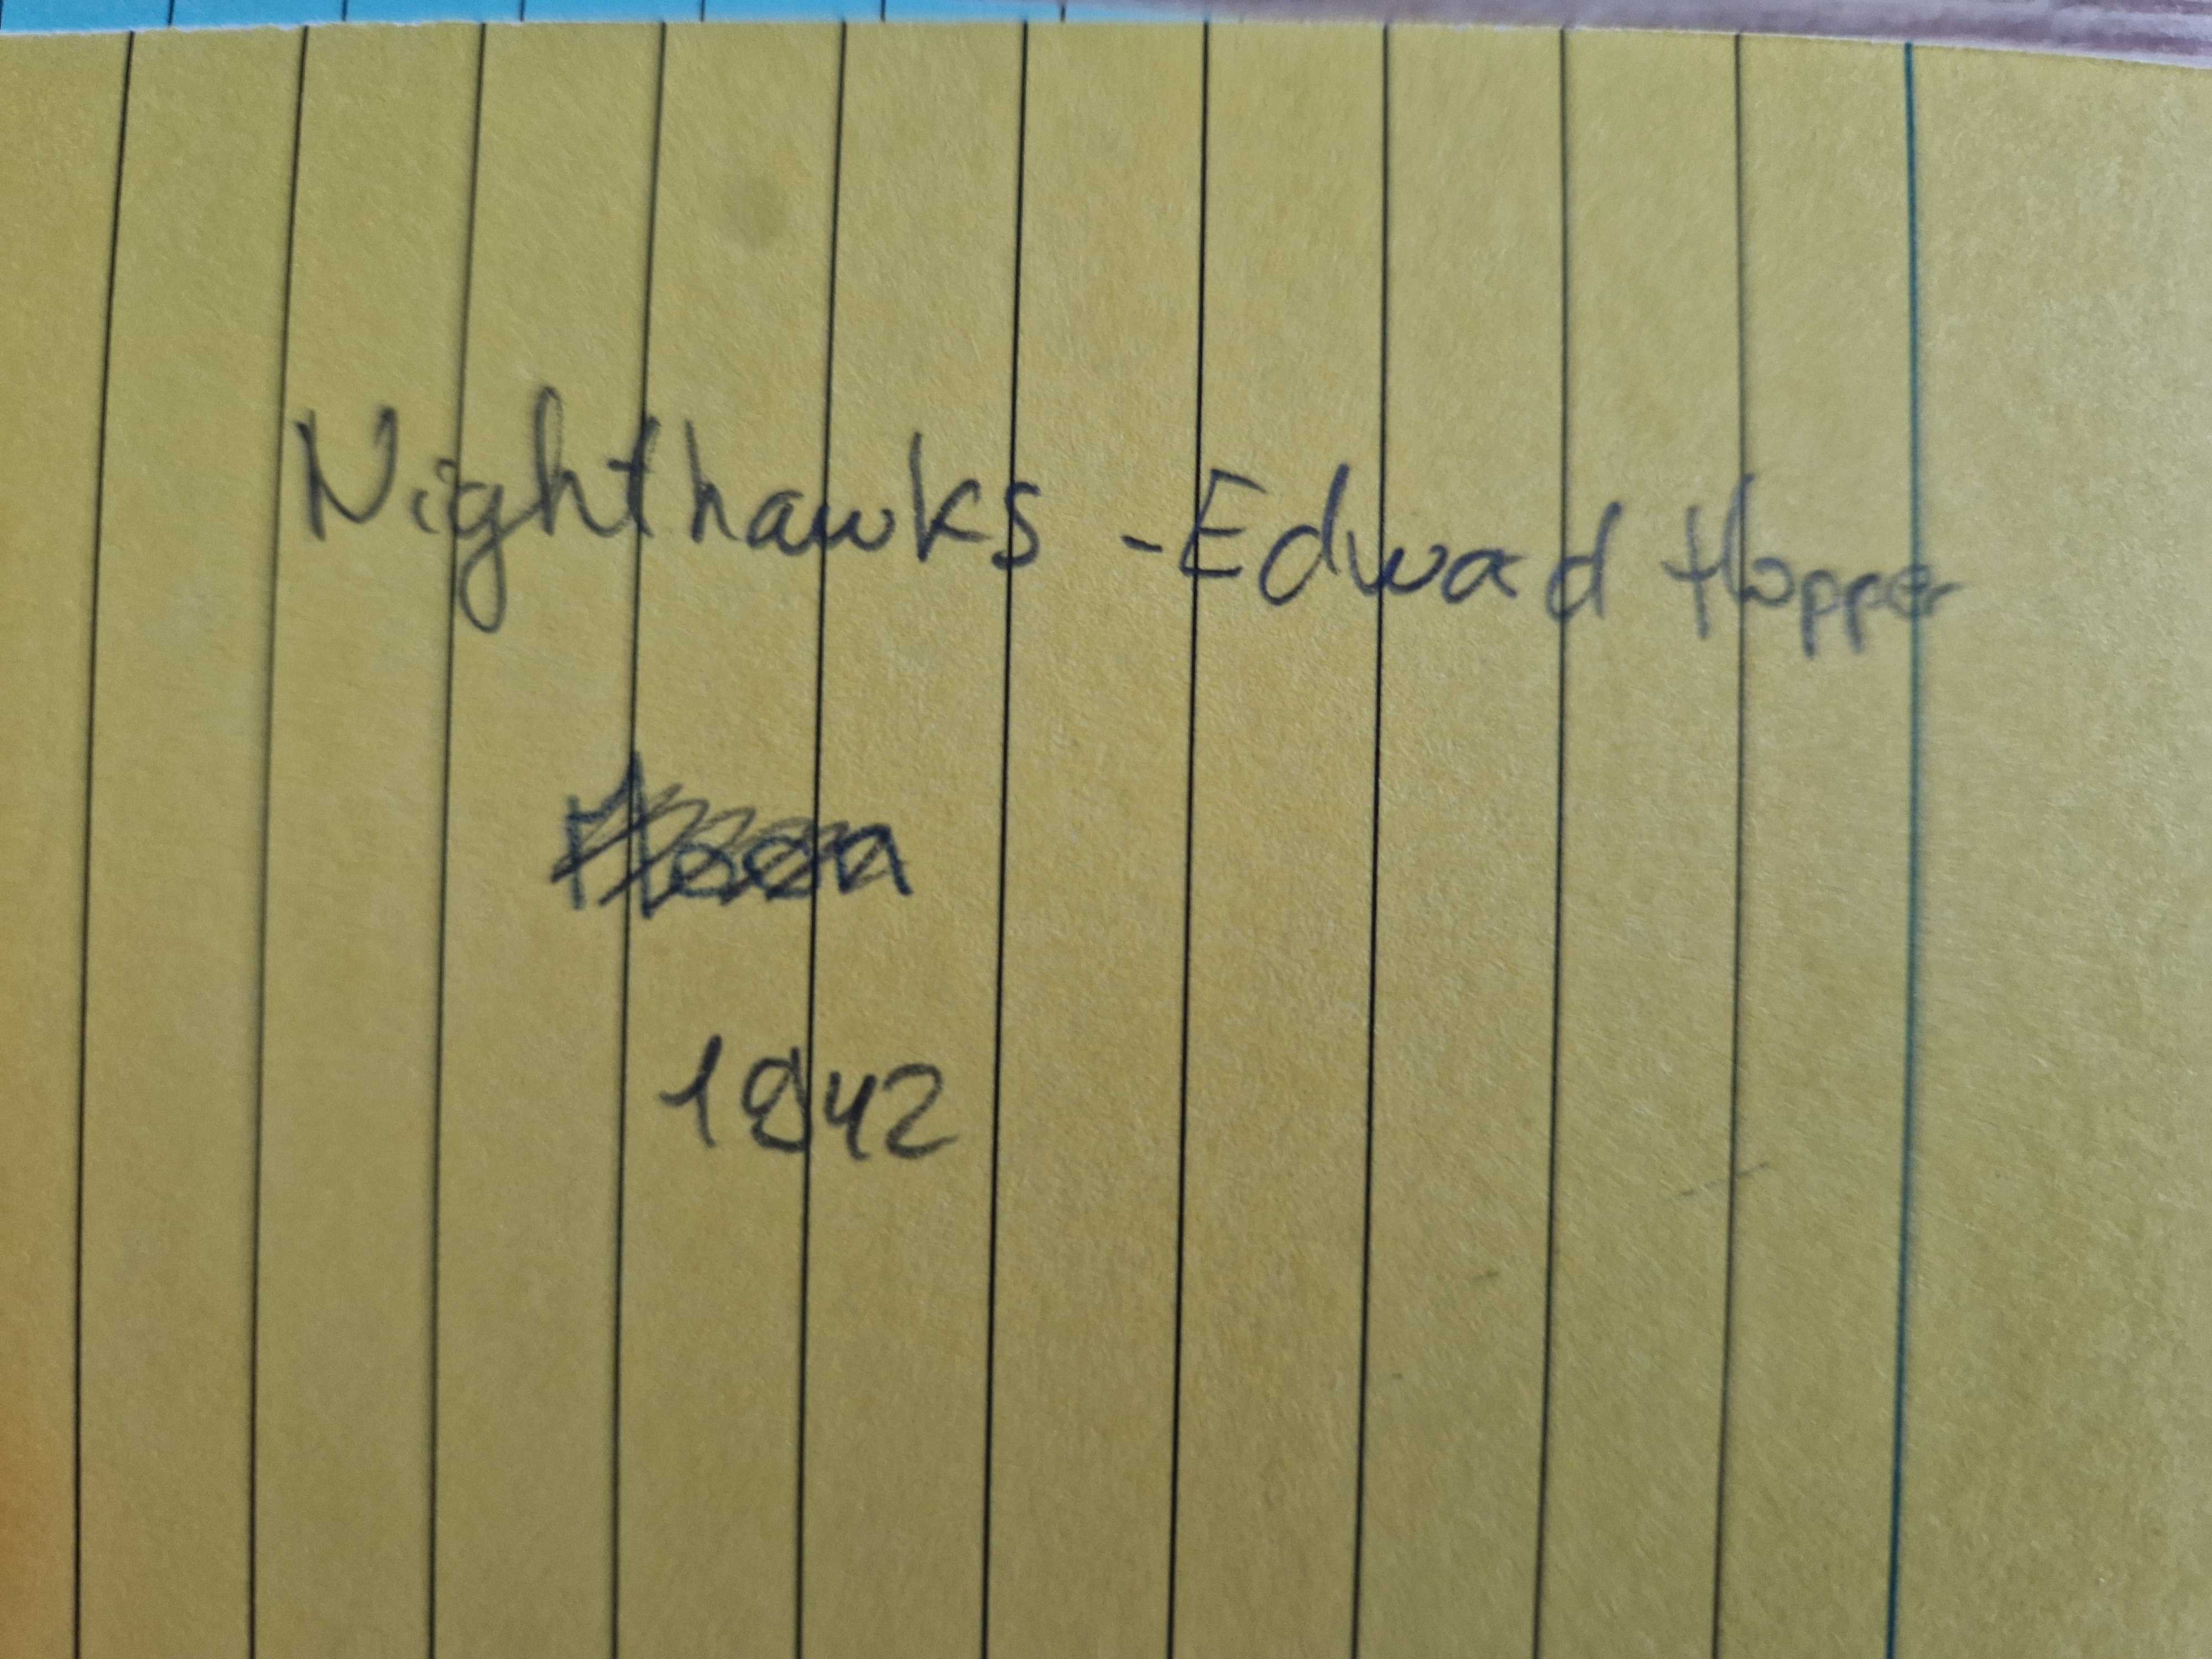 Nighthawks - Edwad Hopper
1942